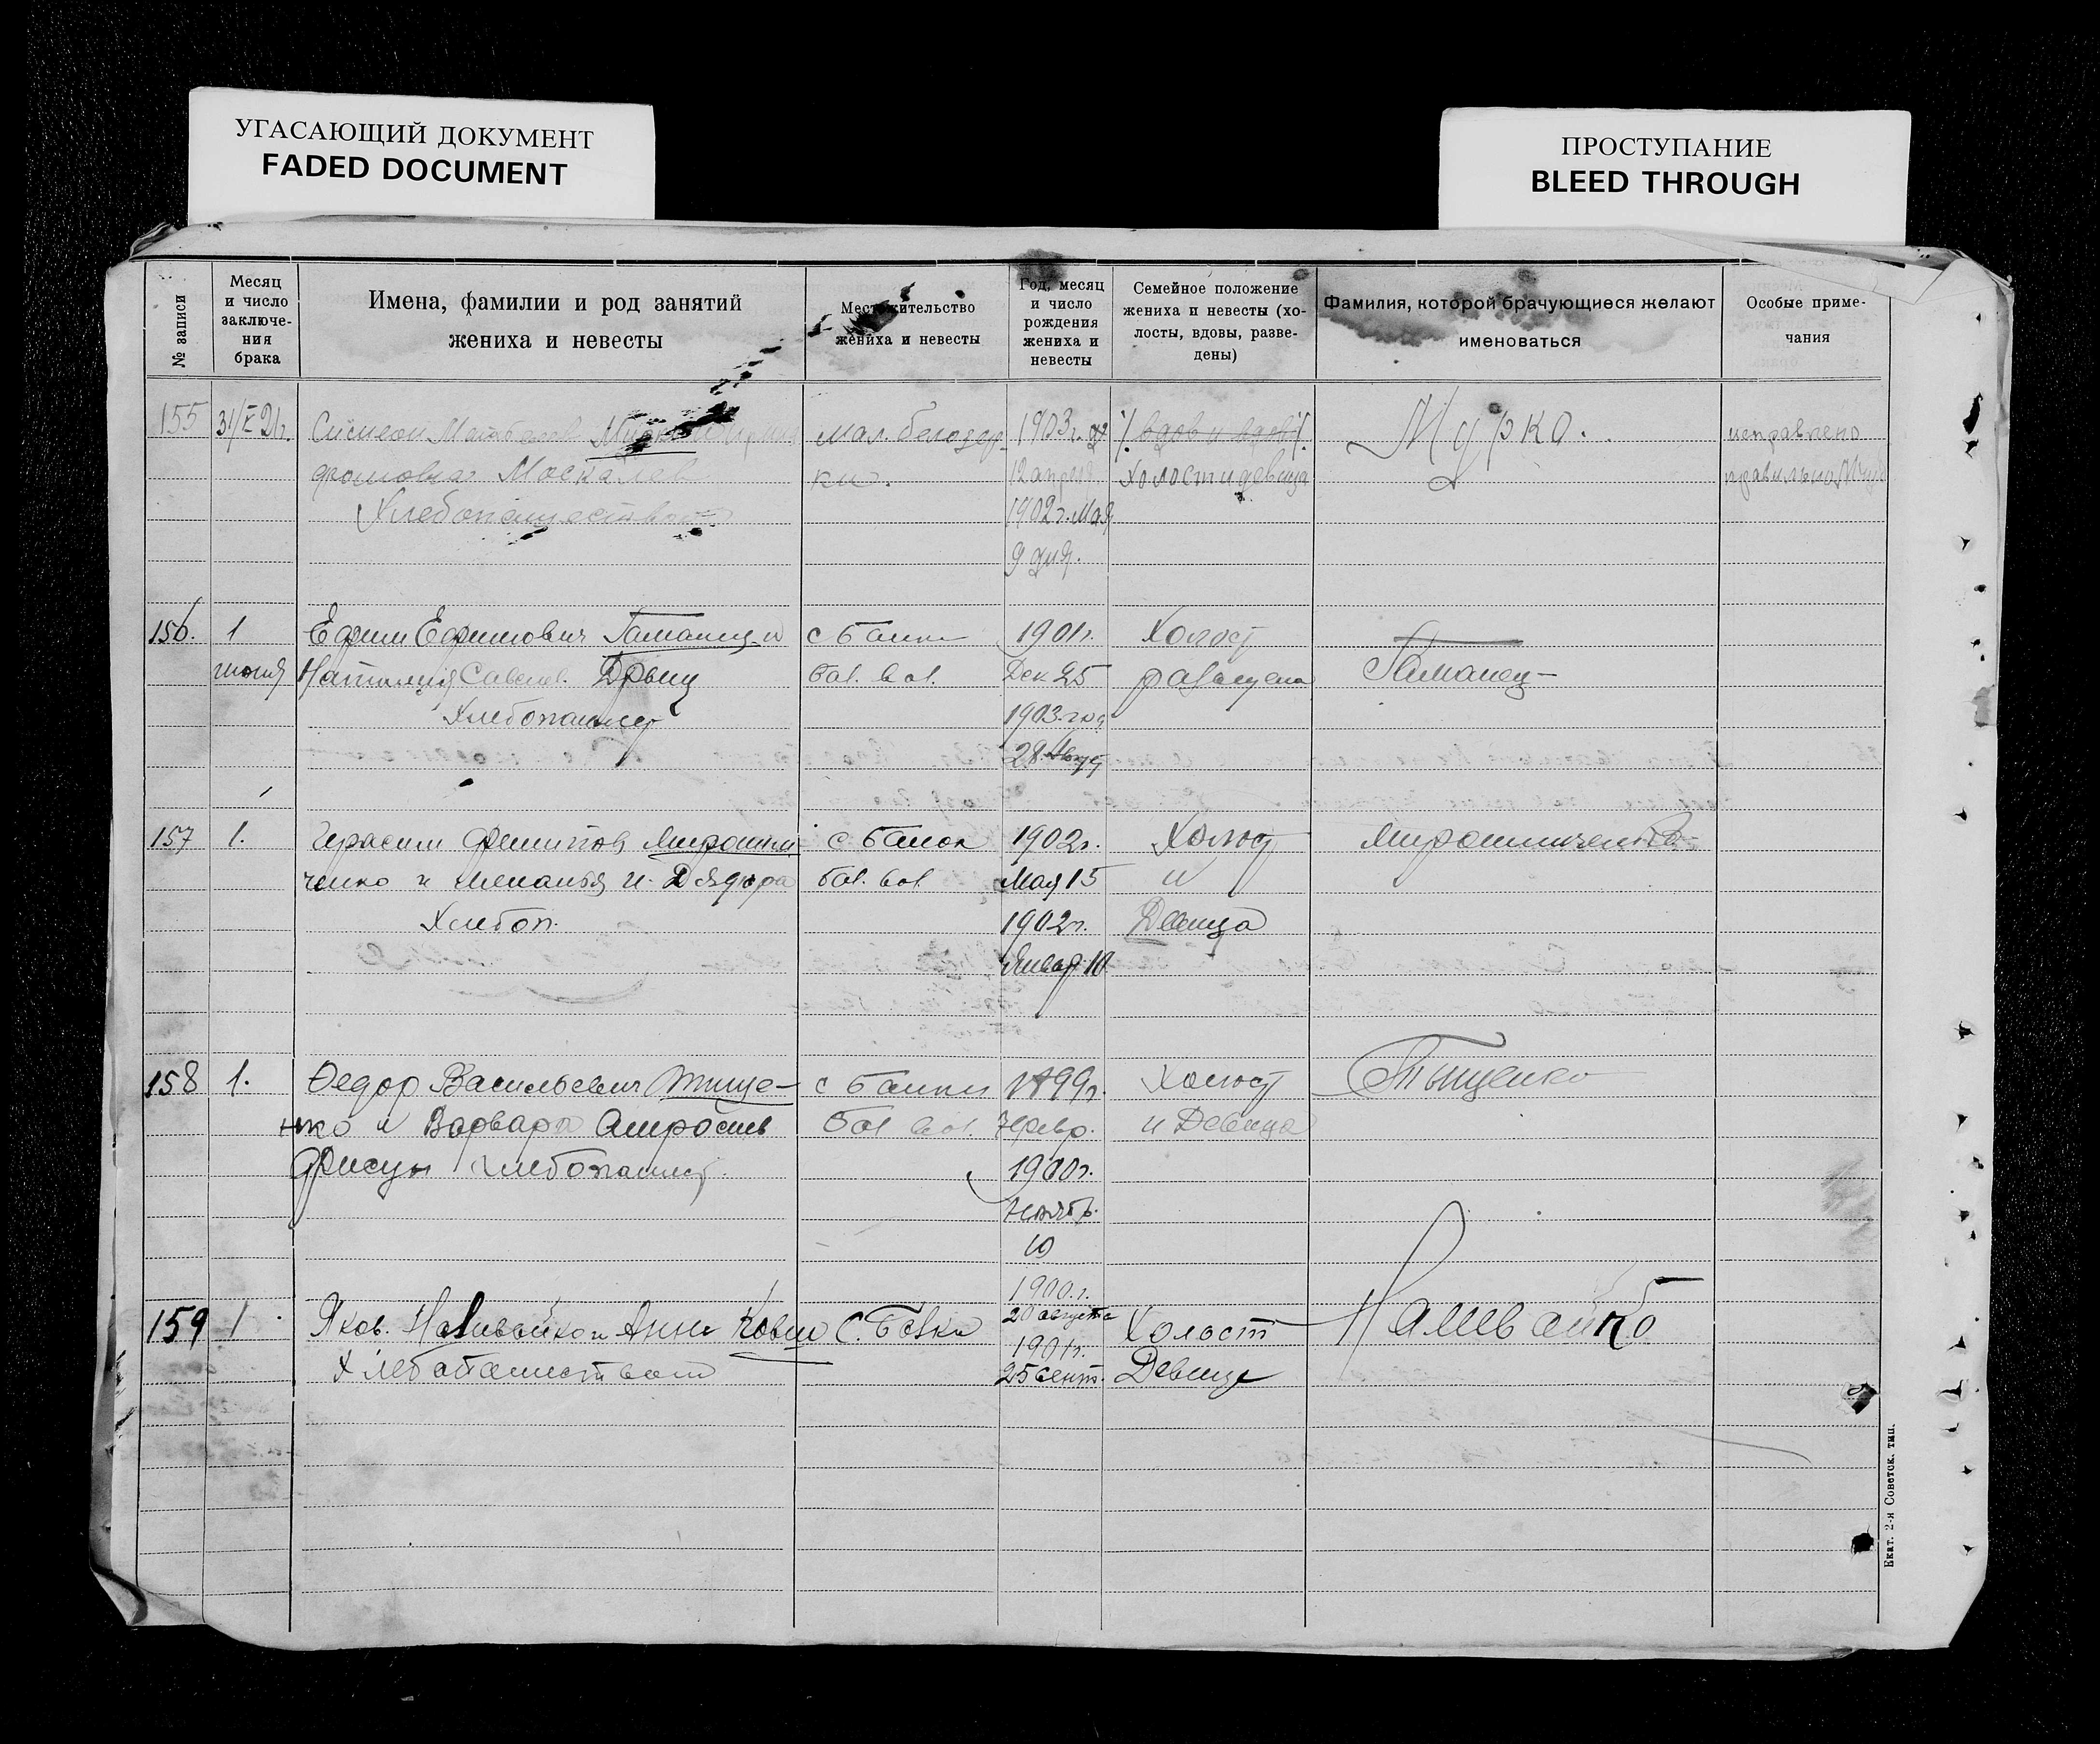 УГАСАЮЩИЙ ДОКУМЕНТ
FADED DOCUMENT
ПРОСТУПАНИЕ
BLEED THROUGH
№ записи
Месяц
и число
заключе-
ния
брака
Имена, фамилии и род занятий
жениха и невесты
Местожительство
жениха и невесты
Год, месяц
и число
рождения
жениха и
невесты
Семейное положение
жениха и невесты (хо-
лосты, вдовы, разве-
дены)
Фамилия, которой брачующиеся желают
именоваться
Особые приме-
чания
155
31/V 21г.
Москалев
Хлебопашеством
мал. белозер-
ки.
1903 г.
12 апреля
1902 г. Мая
9 дня.
вдов и вдов
Холост и девица
Мурка.
исправлено
правильно
156.
1
июня
Ефим Ефимович
Наталия Савел.
Хлебопашец
с Балки
бал. вол.
1901 г.
Дек 25
1903 год
28 Август
Холост
157
1.
Герасим Филиппов Мирошни
ченко и
Хлебоп.
с Балок
бал. вол.
1902 г.
Мая 15
1902 г.
Январ 10
Холост
и
Девица
Мирошниченко
158
1.
Федор Васильевич Тище-
нко и Варвара
хлебопашец
с Балки
бал вол.
1899 г.
7 Февр.
1900 г.
Ноябр.
10
Холост
и Девица
Тыщенко
159
1
Яков. Наливайко и Анна
Хлебопашеством
С. Балки
1900. г.
20 августа
1901 г.
25 сент.
Холост
Девица
Наливайко
Екат. 2-я Советск. тип.